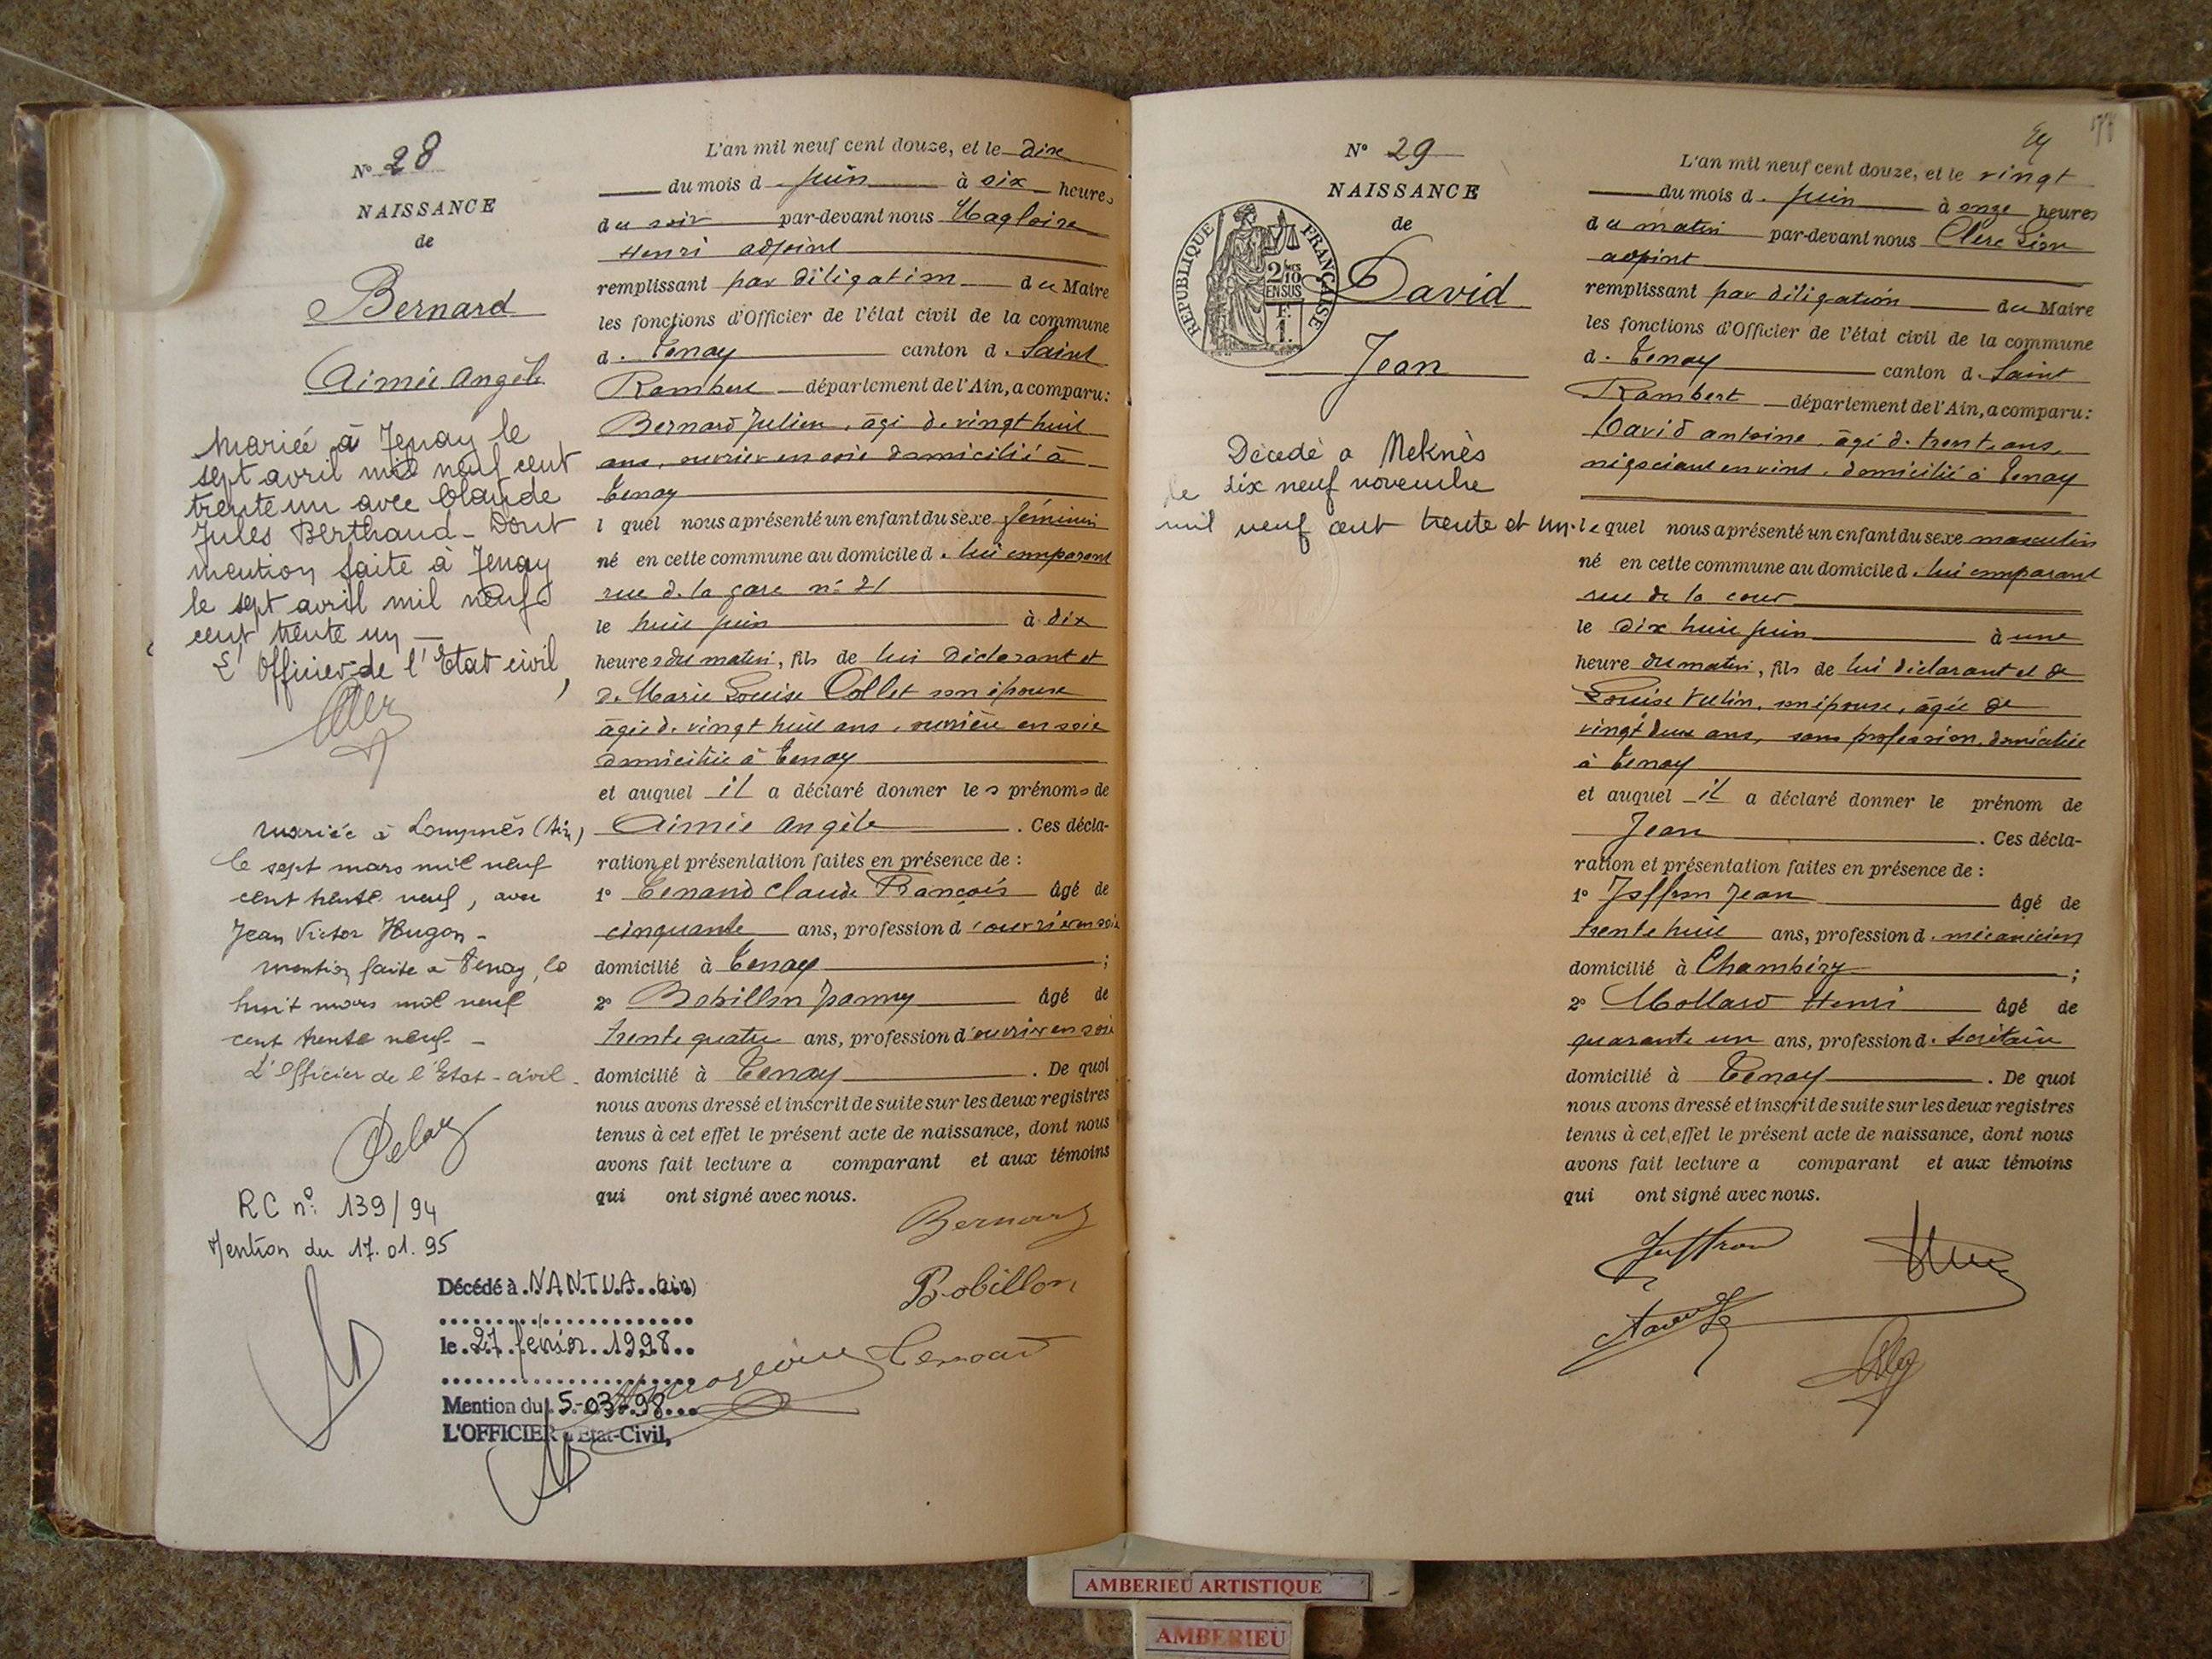 N° 28
NAISSANCE
de
Bernard
Aimée Angèle
Mariée à Tenay le
sept avril mil neuf cent
trente un avec Claude
Jules Berthaud _ Dont
mention faite à Tenay
le sept avril mil neuf
cent trente un _
L'Officier de l'Etat civil,
mariée à Lompnès (Ain)
le sept mars mil neuf
cent trente neuf, avec
Jean Victor Hugon _
mention faite à Tenay, le
huit mars mil neuf
cent trente neuf _
L'Officier de l'Etat-civil.
RC n°: 139/94
Mention du 17.01.95
Décédé à NANTUA (Ain)
le 27 février 1998
Mention du 5-03-98
L'OFFICIER d'Etat-Civil,
L'an mil neuf cent douze, et le dix
du mois d. juin à six heures
du soir par-devant nous Magloire
Henri adjoint
remplissant par déligation du Maire
les fonctions d'Officier de l'état civil de la commune
d. Tenay canton d. Saint
Rambert département de l'Ain, a comparu:
Bernard Julien, âgé de vingt huit
ans, ouvrier en soie domicilié à
Tenay
l quel nous a présenté un enfant du sexe féminin
né en cette commune au domicile d. lui comparant
rue de la gare n° 21
le huit juin à dix
heures du matin, fils de lui déclarant et
de Marie Louise Collet son épouse
âgée de vingt huit ans, ouvrière en soie
domiciliée à Tenay
et auquel il a déclaré donner les prénoms de
Aimée Angèle . Ces décla-
ration et présentation faites en présence de :
1° Tenand Claude François âgé de
cinquante ans, profession d'ouvrier en soie
domicilié à Tenay ;
2° Bobillon Joanny âgé de
trente quatre ans, profession d'ouvrier en soie
domicilié à Tenay . De quoi
nous avons dressé et inscrit de suite sur les deux registres
tenus à cet effet le présent acte de naissance, dont nous
avons fait lecture a comparant et aux témoins
qui ont signé avec nous.
Bernard
Bobillon
Tenand
177
N° 29
NAISSANCE
de
REPUBLIQUE FRANÇAISE
2/10
EN SUS
F.
1.
David
Jean
Décédé à Meknès
le dix neuf novembre
mil neuf cent trente et un.
L'an mil neuf cent douze, et le vingt
du mois d. juin à onze heures
du matin par-devant nous Clerc Léon
adjoint
remplissant par déligation du Maire
les fonctions d'Officier de l'état civil de la commune
d. Tenay canton d. Saint
Rambert département de l'Ain, a comparu:
David Antoine, âgé de trente ans,
négociant en vins, domicilié à Tenay
lequel nous a présenté un enfant du sexe masculin
né en cette commune au domicile d. lui comparant
rue de la cour
le dix huit juin à une
heure du matin, fils de lui déclarant et de
Louise Vullin, son épouse, âgée de
vingt deux ans, sans profession, domiciliée
à Tenay
et auquel il a déclaré donner le prénom de
Jean . Ces décla-
ration et présentation faites en présence de :
1° Joffron Jean âgé de
trente huit ans, profession d. mécanicien
domicilié à Chambéry ;
2° Mollard Henri âgé de
quarante un ans, profession d. secrétaire
domicilié à Tenay . De quoi
nous avons dressé et inscrit de suite sur les deux registres
tenus à cet effet le présent acte de naissance, dont nous
avons fait lecture a comparant et aux témoins
qui ont signé avec nous.
AMBERIEU ARTISTIQUE
AMBERIEU